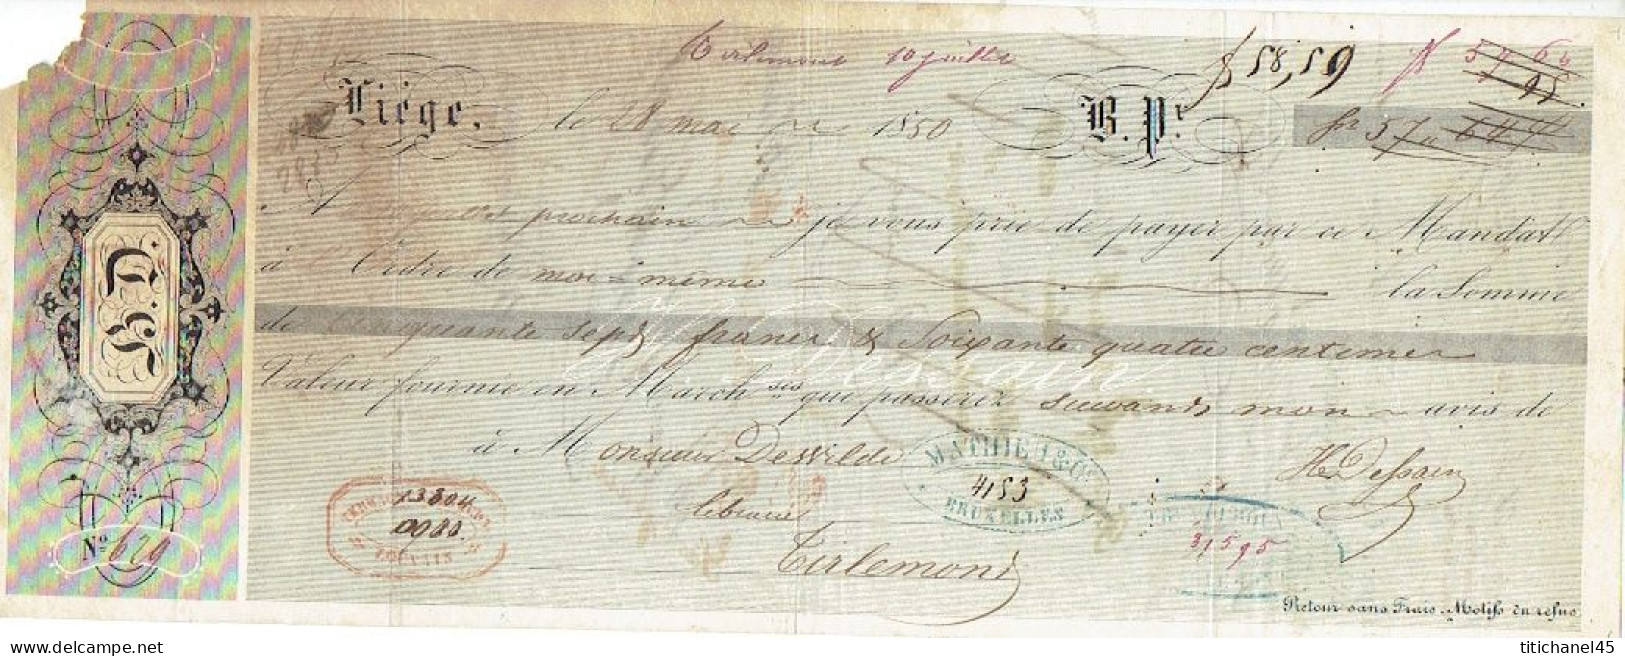 Tirlemont 10 juillet
f 58,59
f 57 64
95
Liége. le 28 mai 1850 B. Pr. fr 57 " 64
prochain je vous prie de payer par ce Mandat
à l'Ordre de moi-même la Somme
de Cinquante sept francs & Soixante quatre centimes
H. Dessain
Valeur fournie en Marchses que passerez suivant mon avis de
à Monsieur DeWilde
libraire
Tirlemont
H Dessain
MATHIEU & Cie
4153
BRUXELLES
LOUVAIN
31595
H. D.
No. 629
Retour sans Frais. Motifs du refus
titichanel45